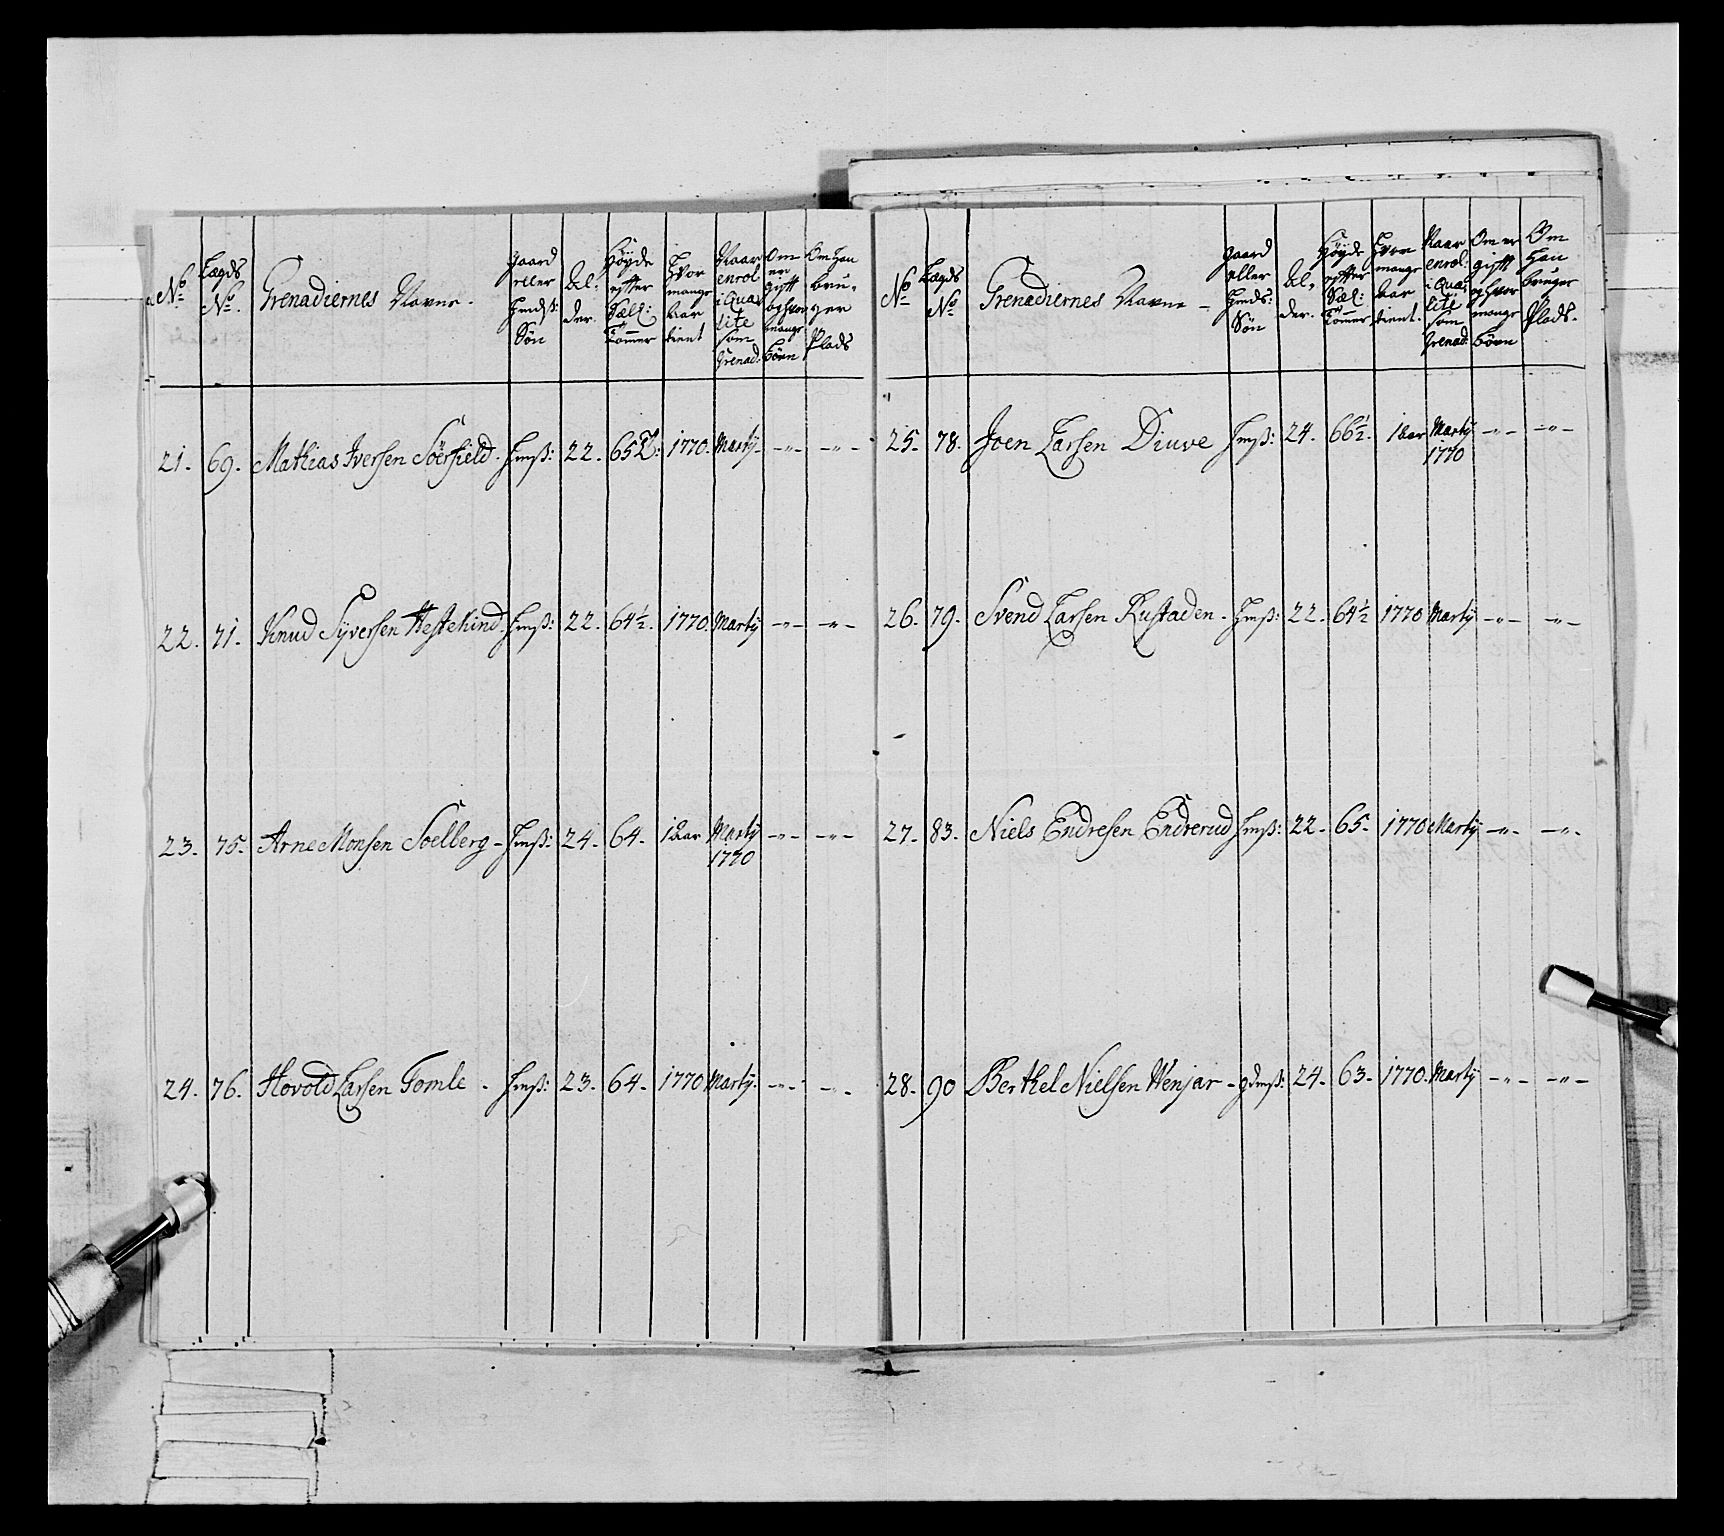 No Lægds No. Grenadiernes Navne. Gaard eller Huusm: Søn Al: der. Høyde efter Sæll: Tommer Hvor mange Aar tient Naar enrol: i Qua: lite som Grenad: Om er gift og hvor mange Børn Om Han bru: ger Plads
21. 69. Mathias Iversen Söerfield. Hmß: 22. 65 1770. Marty - " - - " -
22. 71. Knud Syversen Hestehind. Hmß: 22. 64½. 1770. Marty - " - - " -
23. 75. Arne Monsen Soelberg - Hmß: 24. 64. 1 Aar Marty 1770 - " - - " -
24. 76. Hovold Larsen Tomle - Hmß: 23. 64. 1770 Marty. - " - - " -
No Lægds No Grenadiernes Navne - Gaard eller Huusmds: Søn Al: der. Høyde efter Sæl: Tommer Hvor mange Aar tient. Naar enrol: i Qua: lite som Grenad: Om er gift og hvor mange Børn Om Han bruger Plads.
25. 78. Joen Larsen Diuve Hmß: 24. 66½. 1 Aar Marty 1770 - " - - " -
26. 79. Svend Larsen Rustaden. Hmß: 22. 64½ 1770 Marty - " - - " -
27. 83. Niels Endresen Endrerud Hmß: 22. 65. 1770 Marty - " - - " -
28. 90 Berthel Nielsen Wenjar - gdmß: 24. 63. 1770. Marty - " - - " -